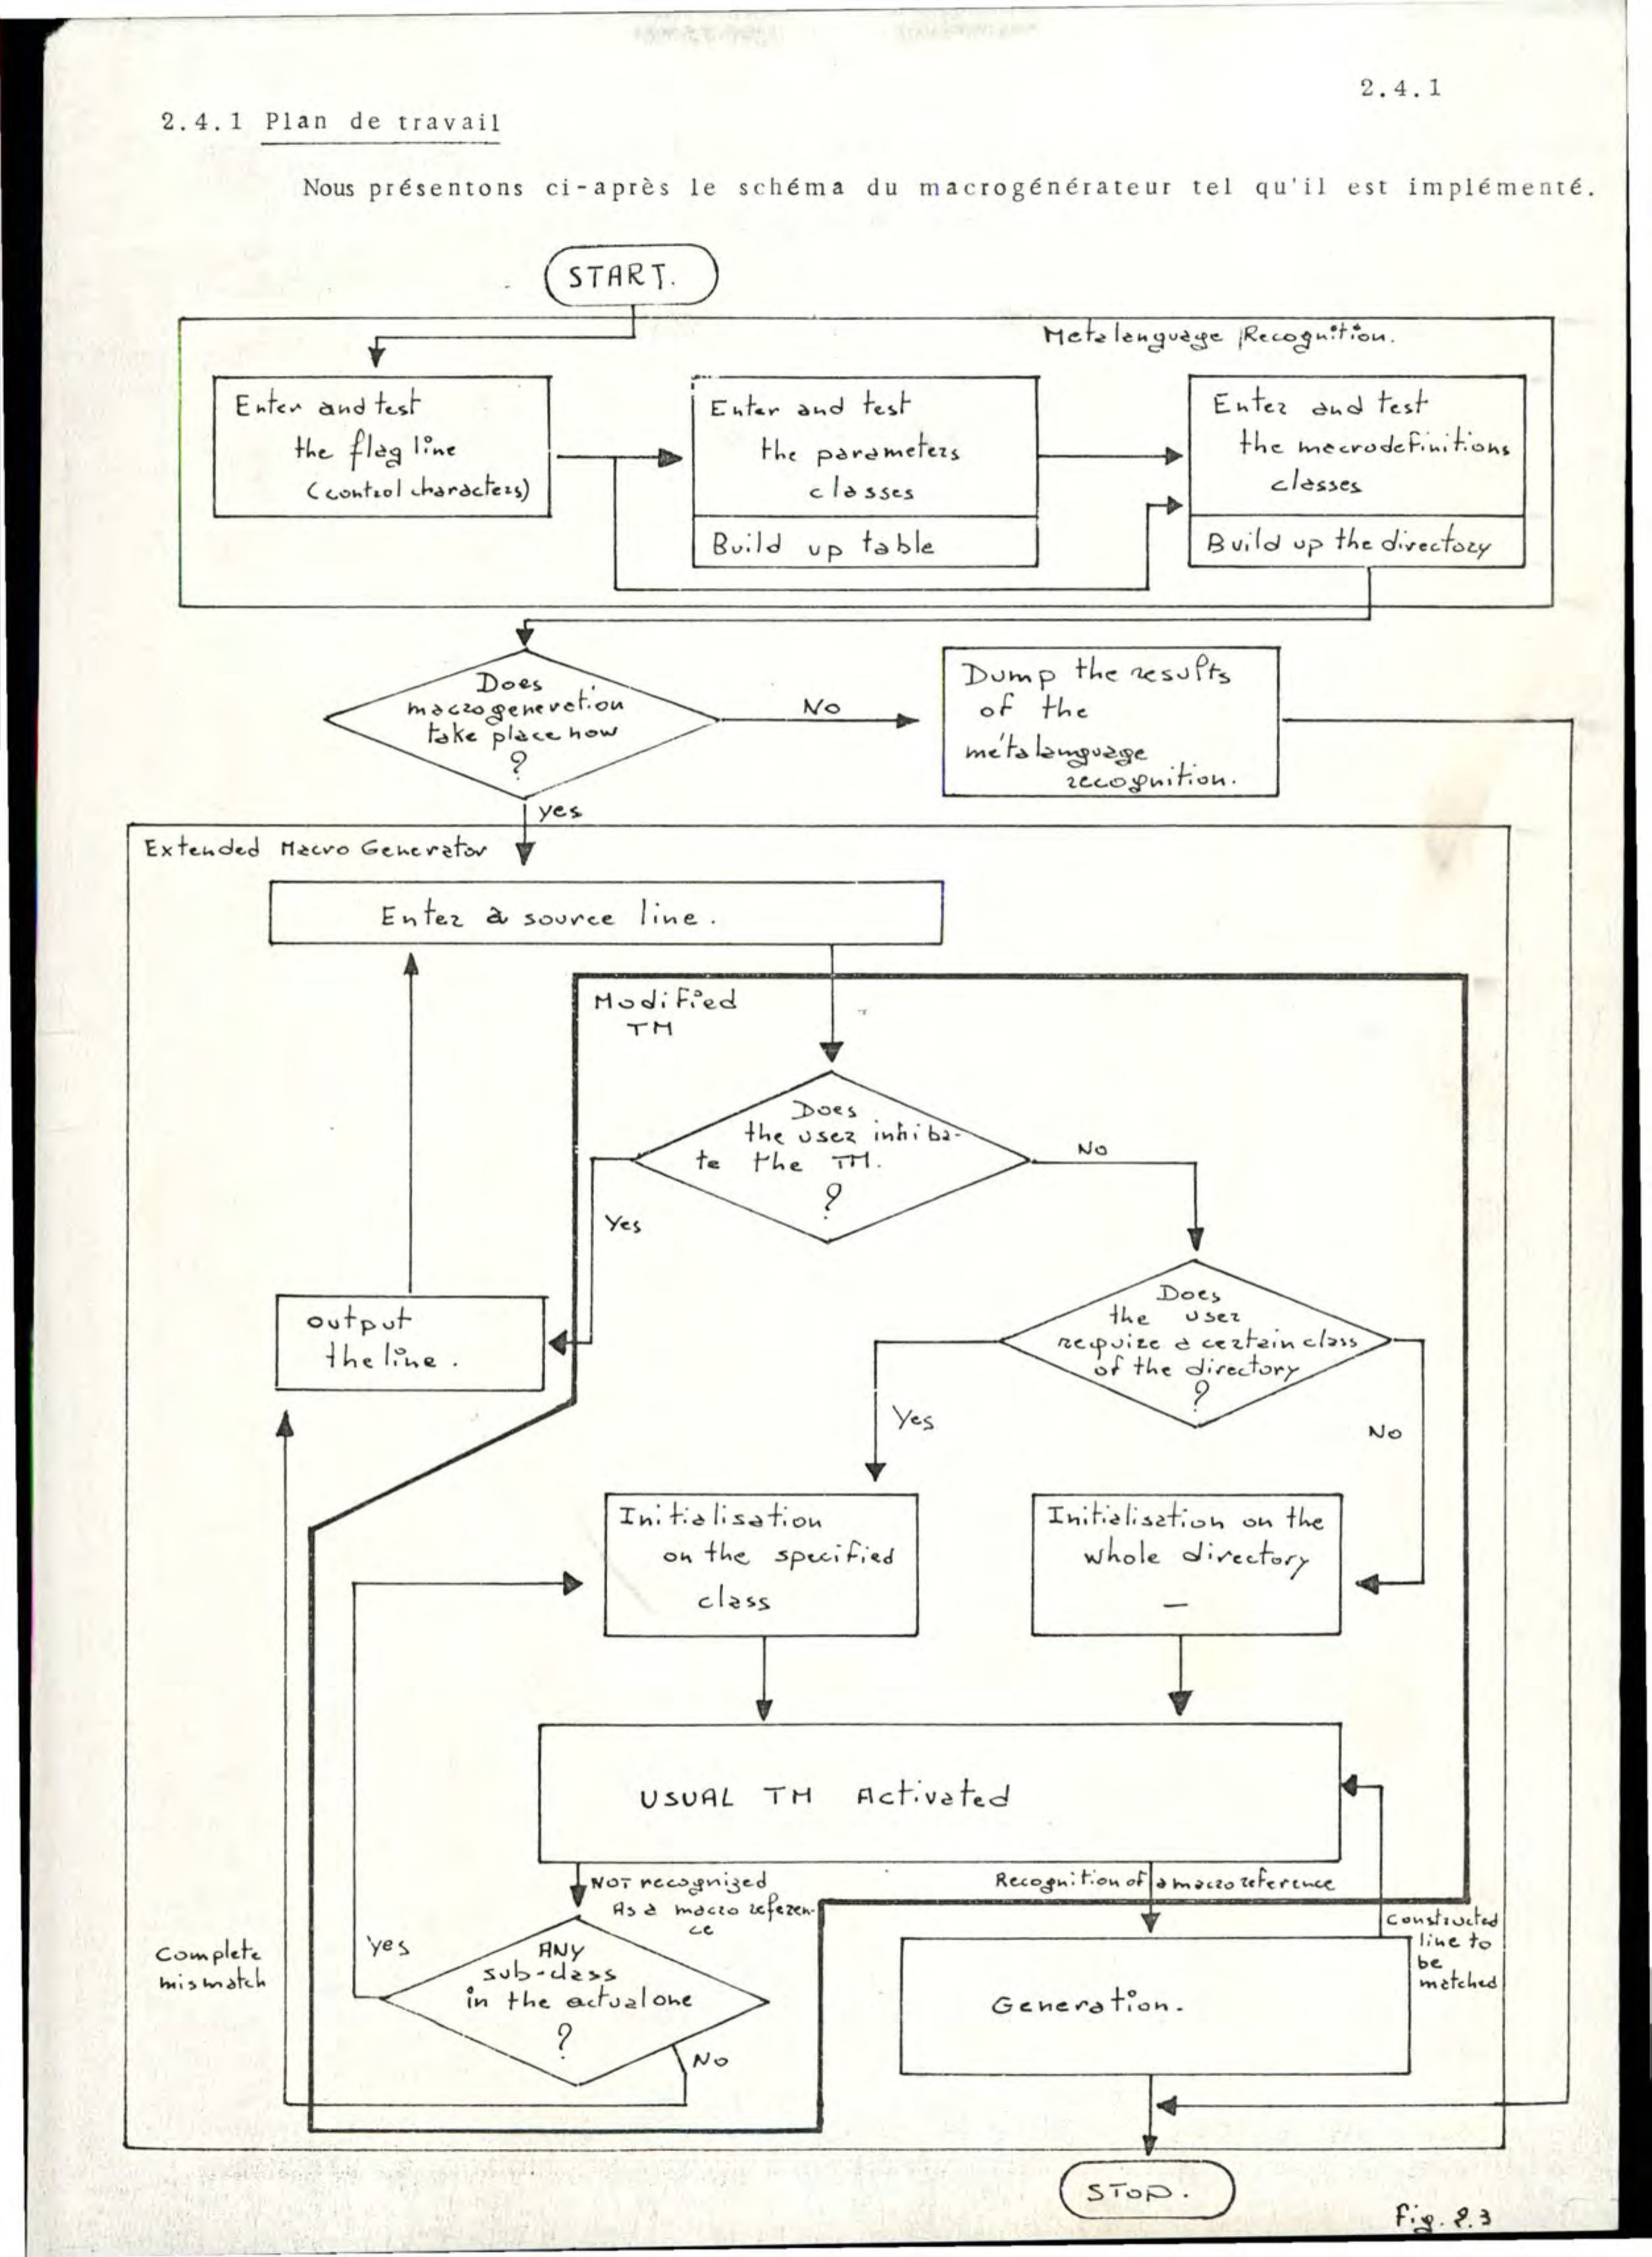 2.4.1
2.4.1 Plan de travail
Nous présentons ci-après le schéma du macrogénérateur tel qu'il est implémenté.
START.
Metalanguage Recognition.
Enter and test
the flag line
(control characters)
Enter and test
the parameters
classes
Build up table
Enter and test
the macrodefinitions
classes
Build up the directory
Does
macrogeneration
take place now
?
No
Dump the results
of the
métalanguage
recognition.
yes
Extended Macro Generator
Enter a source line.
Modified
TM
Does
the user inhiba-
te the TM.
?
No
Yes
output
the line.
Does
the user
require a certain class
of the directory
?
Yes
No
Initialisation
on the specified
class
Initialisation on the
whole directory
USUAL TM Activated
NOT recognized
As a macro referen-
ce
Recognition of a macro reference
Constructed
line to
be
matched
Complete
mismatch
yes
ANY
sub-class
in the actual one
?
No
Generation.
STOP.
Fig. 2.3